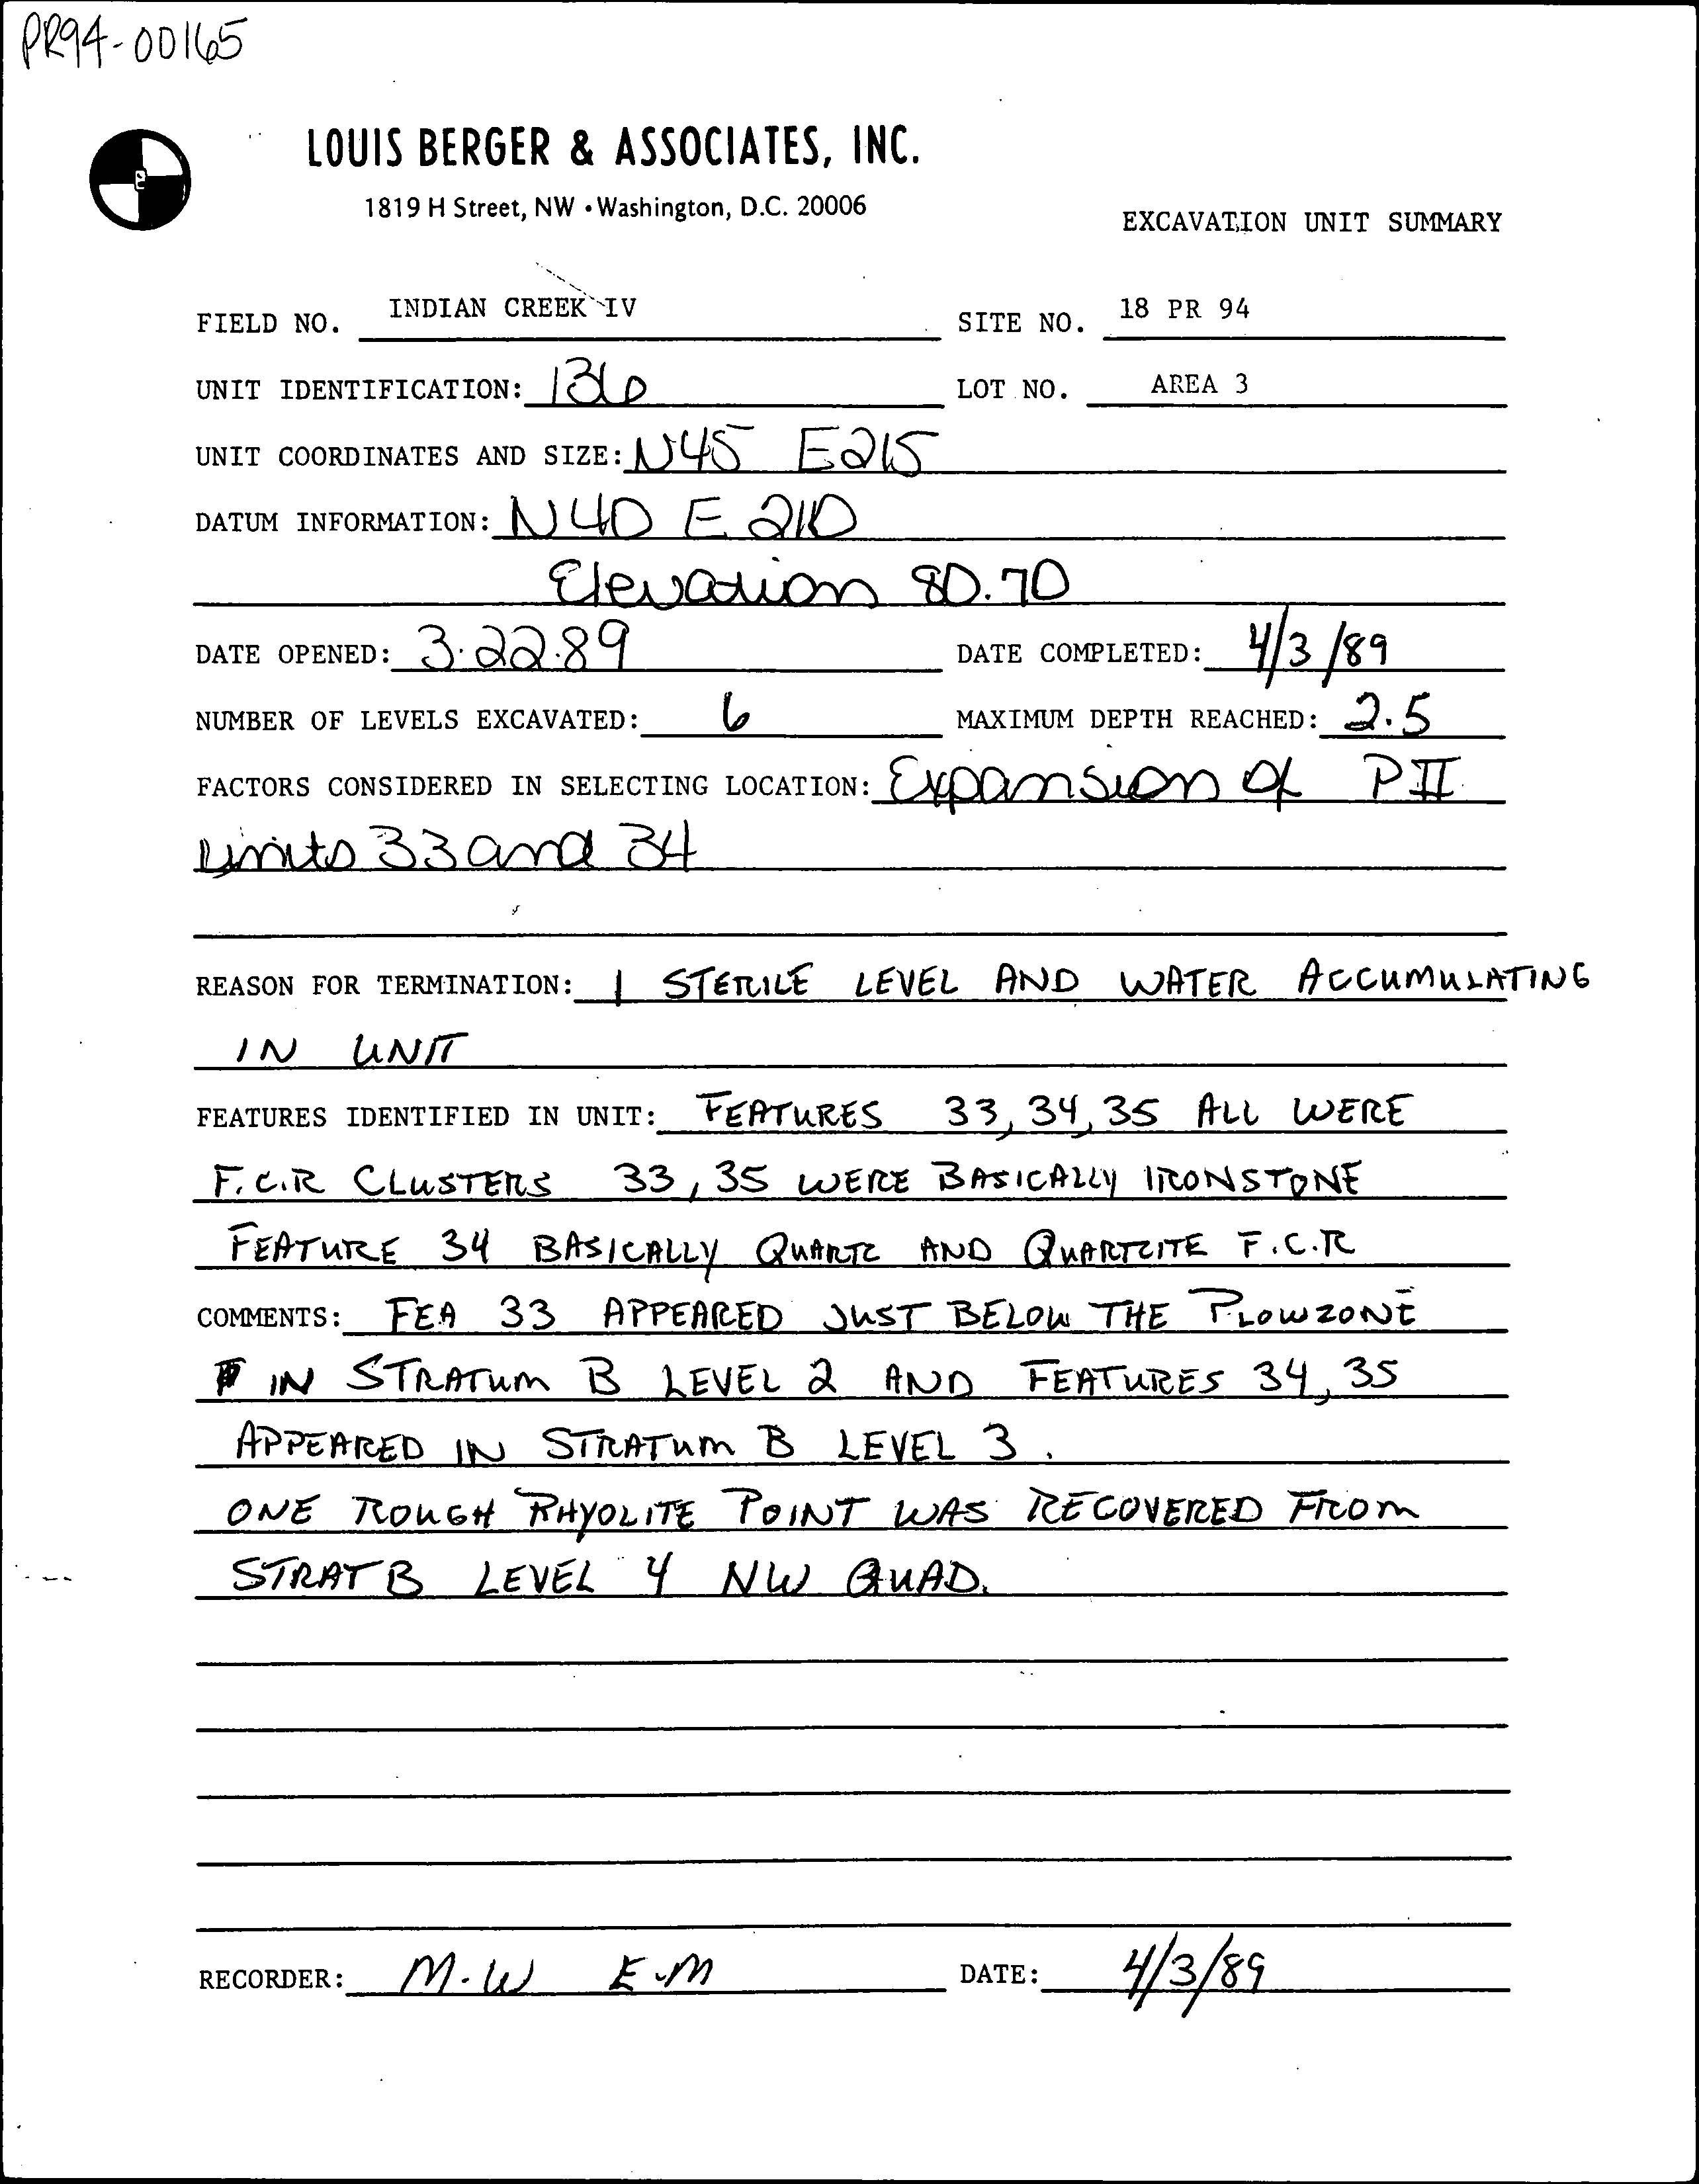 PR94-00165
LOUIS BERGER & ASSOCIATES, INC.
1819 H Street, NW • Washington, D.C. 20006
EXCAVATION UNIT SUMMARY
FIELD NO. INDIAN CREEK IV SITE NO. 18 PR 94
UNIT IDENTIFICATION: 136 LOT NO. AREA 3
UNIT COORDINATES AND SIZE: N45 E215
DATUM INFORMATION: N40 E 210
Elevation 80.70
DATE OPENED: 3.22.89 DATE COMPLETED: 4/3/89
NUMBER OF LEVELS EXCAVATED: 6 MAXIMUM DEPTH REACHED: 2.5
FACTORS CONSIDERED IN SELECTING LOCATION: Expansion of PII
units 33 and 34
REASON FOR TERMINATION: 1 STERILE LEVEL AND WATER ACCUMULATING
IN UNIT
FEATURES IDENTIFIED IN UNIT: FEATURES 33, 34, 35 ALL WERE
F.C.R CLUSTERS 33, 35 WERE BASICALLY IRONSTONE
FEATURE 34 BASICALLY QUARTZ AND QUARTZITE F.C.R
COMMENTS: FEA 33 APPEARED JUST BELOW THE PLOWZONE
IN STRATUM B LEVEL 2 AND FEATURES 34, 35
APPEARED IN STRATUM B LEVEL 3.
ONE ROUGH RHYOLITE POINT WAS RECOVERED FROM
STRAT B LEVEL 4 NW QUAD.
RECORDER: M.W E.M DATE: 4/3/89